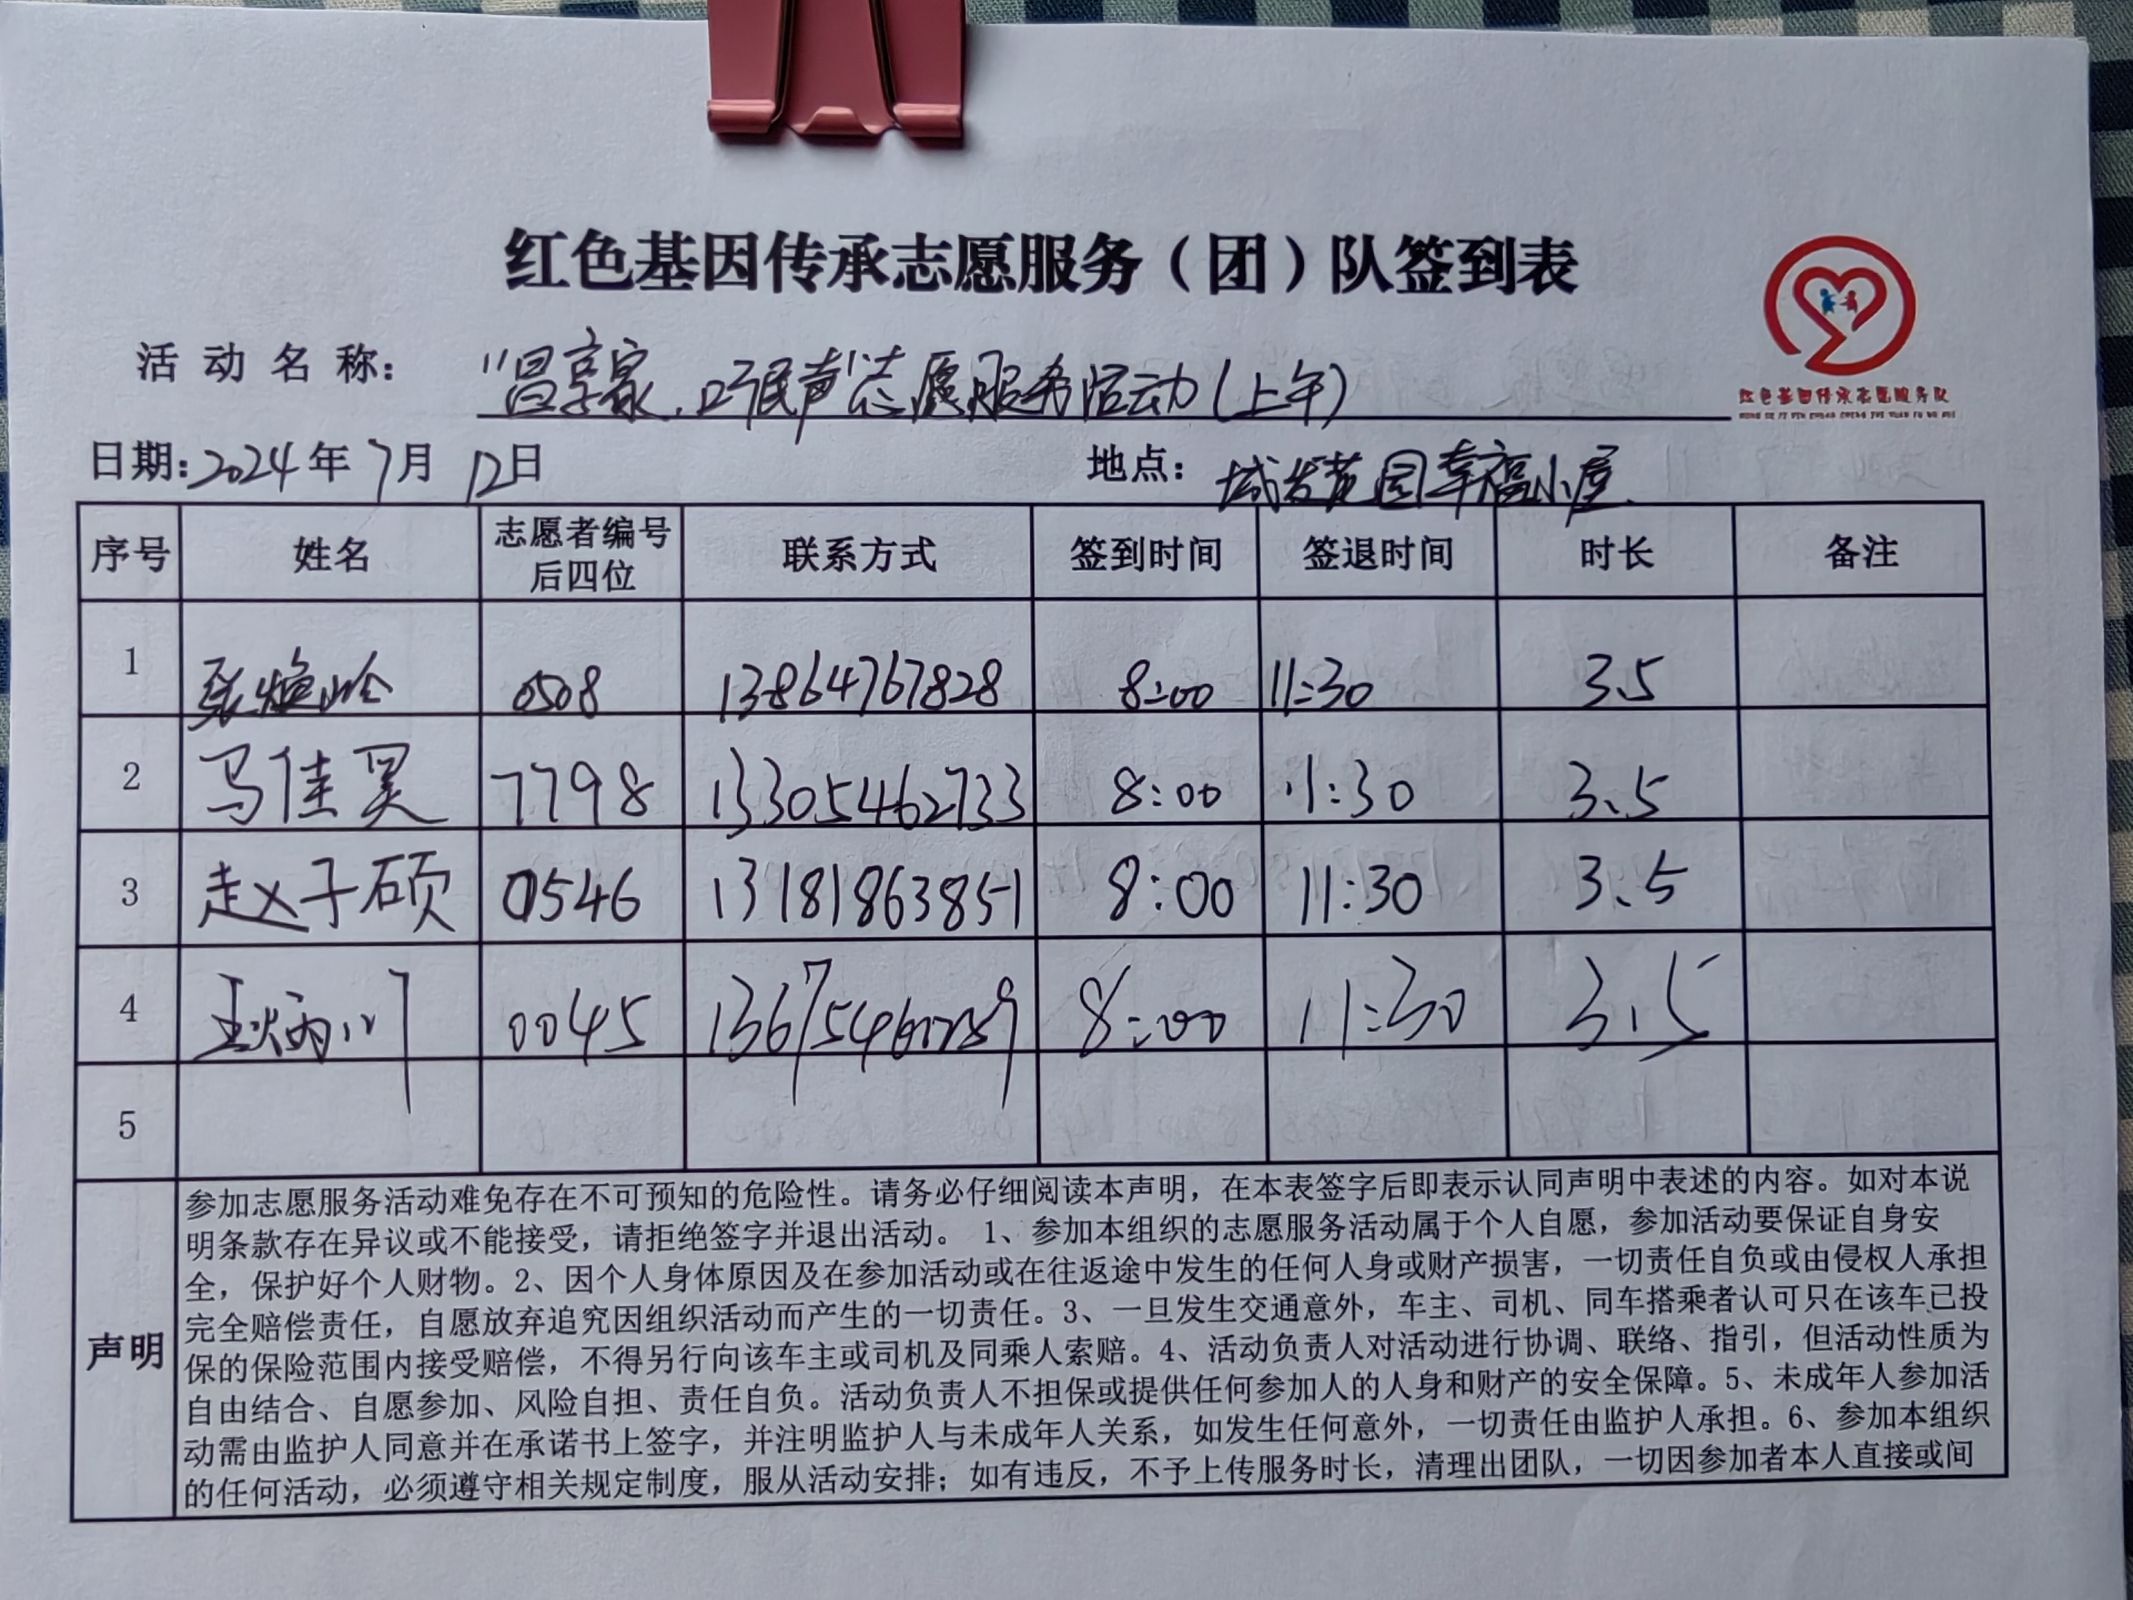 红色基因传承志愿服务（团）队签到表
活动名称： “昌享家.呼民声”志愿服务活动(上午)
红色基因传承志愿服务队
日期：2024年7月12日 地点： 城发黄园幸福小屋
序号 姓名 志愿者编号后四位 联系方式 签到时间 签退时间 时长 备注
1 张焕岭 0508 13864767828 8:00 11:30 3.5
2 马佳昊 7798 13305462733 8:00 11:30 3.5
3 赵子硕 0546 13181863851 8:00 11:30 3.5
4 王炳川 0045 8:00 11:30 3.5
5
声明
参加志愿服务活动难免存在不可预知的危险性。请务必仔细阅读本声明，在本表签字后即表示认同声明中表述的内容。如对本说
明条款存在异议或不能接受，请拒绝签字并退出活动。 1、参加本组织的志愿服务活动属于个人自愿，参加活动要保证自身安
全，保护好个人财物。2、因个人身体原因及在参加活动或在往返途中发生的任何人身或财产损害，一切责任自负或由侵权人承担
完全赔偿责任，自愿放弃追究因组织活动而产生的一切责任。3、一旦发生交通意外，车主、司机、同车搭乘者认可只在该车已投
保的保险范围内接受赔偿，不得另行向该车主或司机及同乘人索赔。4、活动负责人对活动进行协调、联络、指引，但活动性质为
自由结合、自愿参加、风险自担、责任自负。活动负责人不担保或提供任何参加人的人身和财产的安全保障。5、未成年人参加活
动需由监护人同意并在承诺书上签字，并注明监护人与未成年人关系，如发生任何意外，一切责任由监护人承担。6、参加本组织
的任何活动，必须遵守相关规定制度，服从活动安排；如有违反，不予上传服务时长，清理出团队，一切因参加者本人直接或间